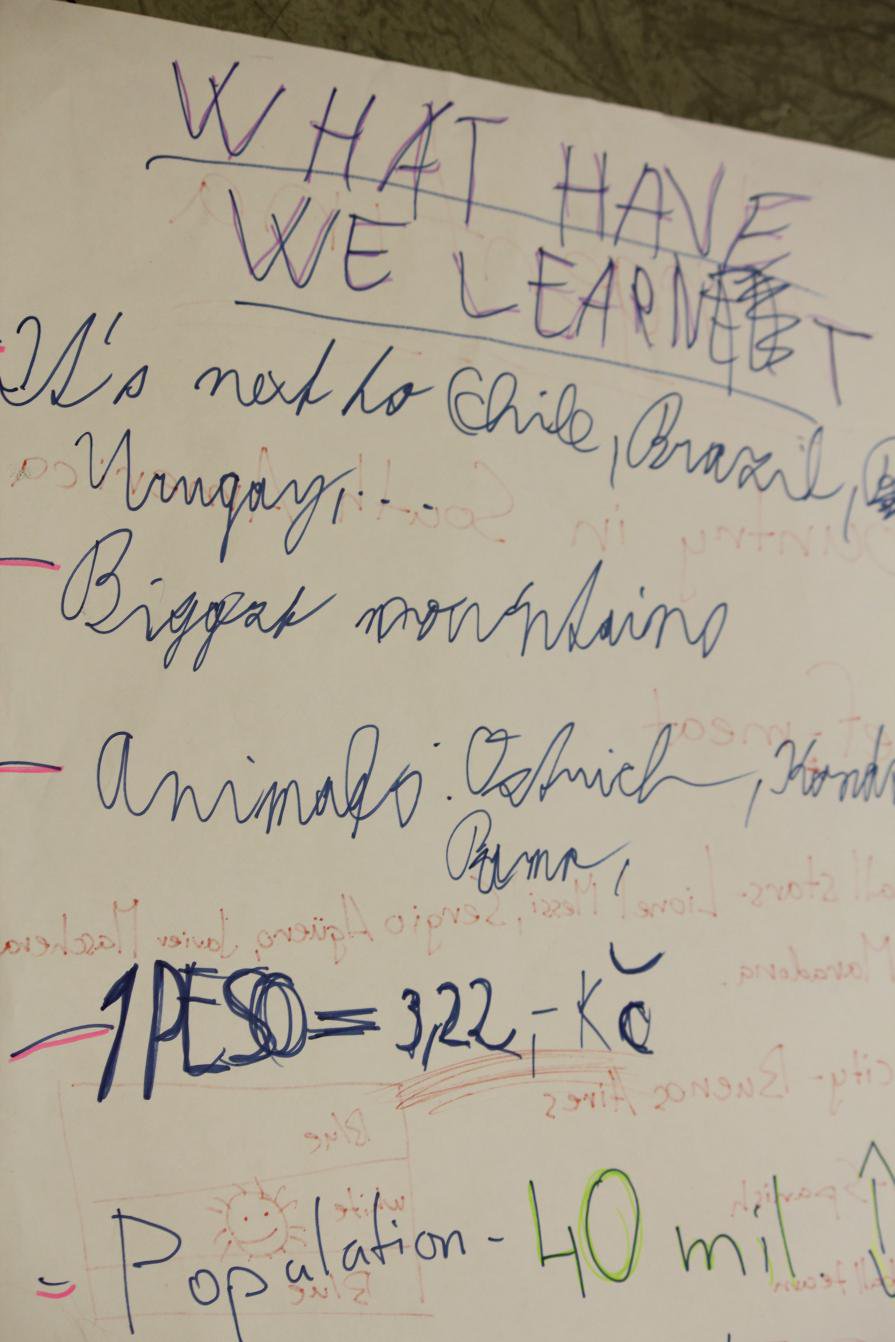 WHAT HAVE
WE LEARNT
It's next to Chile, Brazil,
Urugay,...
- Biggest mountains
- Animals: Ostrich, Kond
Puma,
- 1 PESO = 3,22,- Kč
- Population - 40 mil.
country in South America
of meat
all stars - Lionel Messi, Sergio Agüero, Javier Maschera
Maradona.
city - Buenos Aires
Blue
Spanish
white
Blue